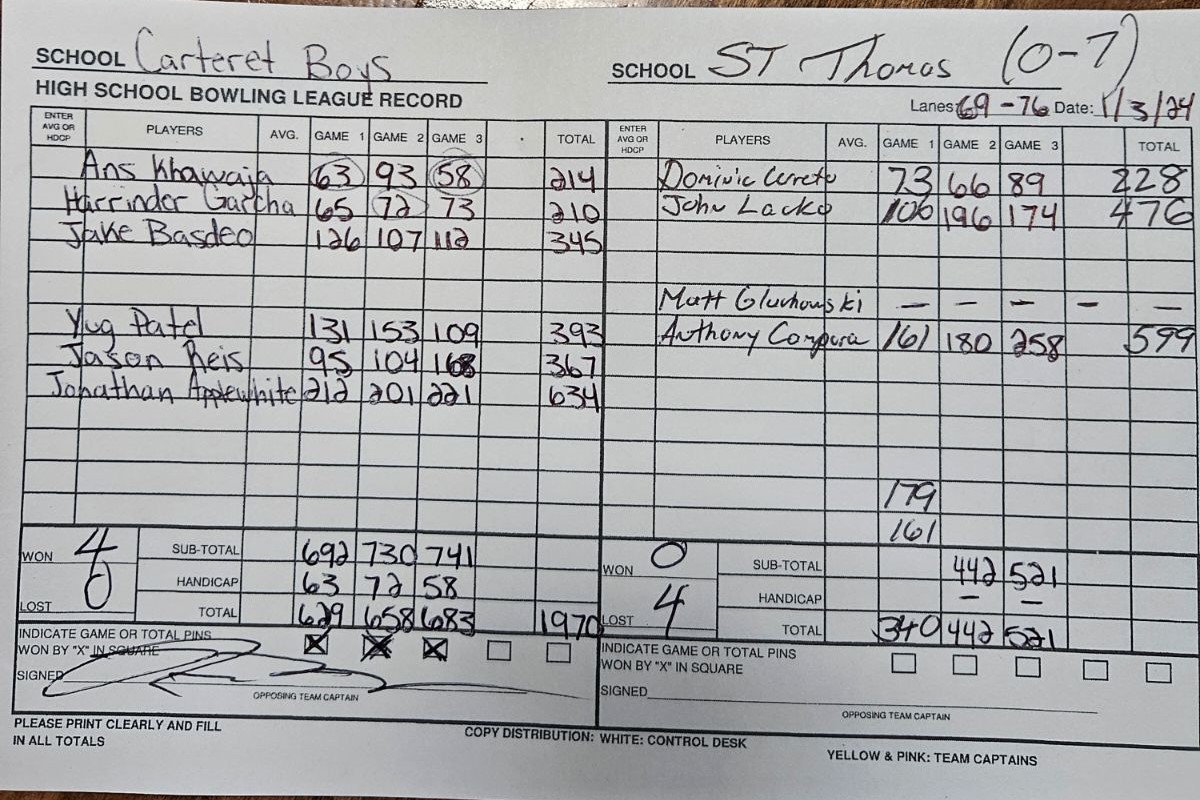 SCHOOL Carteret Boys
SCHOOL ST Thomas (0-7)
HIGH SCHOOL BOWLING LEAGUE RECORD
Lanes 69-76 Date: 1/3/24
ENTER AVG OR HDCP PLAYERS AVG. GAME 1 GAME 2 GAME 3 TOTAL
ENTER AVG OR HDCP PLAYERS AVG. GAME 1 GAME 2 GAME 3 TOTAL
Ans Khawaja 63 93 58 214
Dominic 73 66 89 228
Harrinder Garcha 65 72 73 210
John Lacko 106 196 174 476
Jake Basdeo 126 107 112 345
Matt Gluchowski — — — — —
Yug Patel 131 153 109 393
Anthony Campora 161 180 258 599
Jason Reis 95 104 168 367
Jonathan Applewhite 212 201 221 634
179
161
WON 4 SUB-TOTAL 692 730 741
WON 0 SUB-TOTAL 442 521
HANDICAP 63 72 58
HANDICAP — —
LOST 0 TOTAL 629 658 683 1970
LOST 4 TOTAL 340 442 521
INDICATE GAME OR TOTAL PINS
WON BY "X" IN SQUARE X X X
INDICATE GAME OR TOTAL PINS
WON BY "X" IN SQUARE
SIGNED
OPPOSING TEAM CAPTAIN
SIGNED
OPPOSING TEAM CAPTAIN
PLEASE PRINT CLEARLY AND FILL
IN ALL TOTALS
COPY DISTRIBUTION: WHITE: CONTROL DESK
YELLOW & PINK: TEAM CAPTAINS